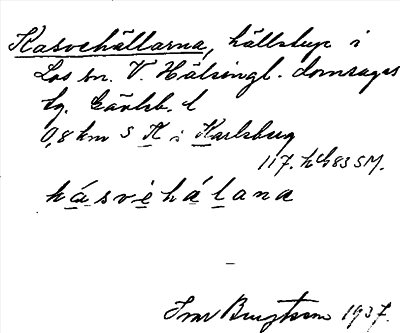 Kasvehällarna, hällstup i
Los sn. V. Hälsingl. domsagas
tg. Gävleb. l
0,8 km S K i Karlsberg
117. h 683 SM.
hásvéhálana
Ivar Bengtsson 1937.